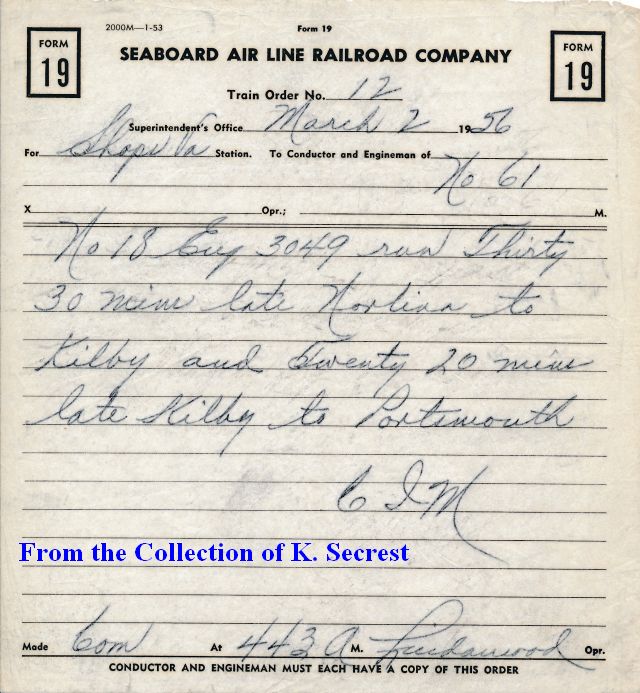 2000M—1-53 Form 19
FORM 19 SEABOARD AIR LINE RAILROAD COMPANY FORM 19
Train Order No. 12
Superintendent's Office March 2 1956
For Shops Va Station. To Conductor and Engineman of
No 61
X Opr.; M.
No 18 Eng 3049 run Thirty
30 mins late Norlina to
Kilby and Twenty 20 mins
late Kilby to Portsmouth
C I M
From the Collection of K. Secrest
Made Com At 443 A M. Opr.
CONDUCTOR AND ENGINEMAN MUST EACH HAVE A COPY OF THIS ORDER